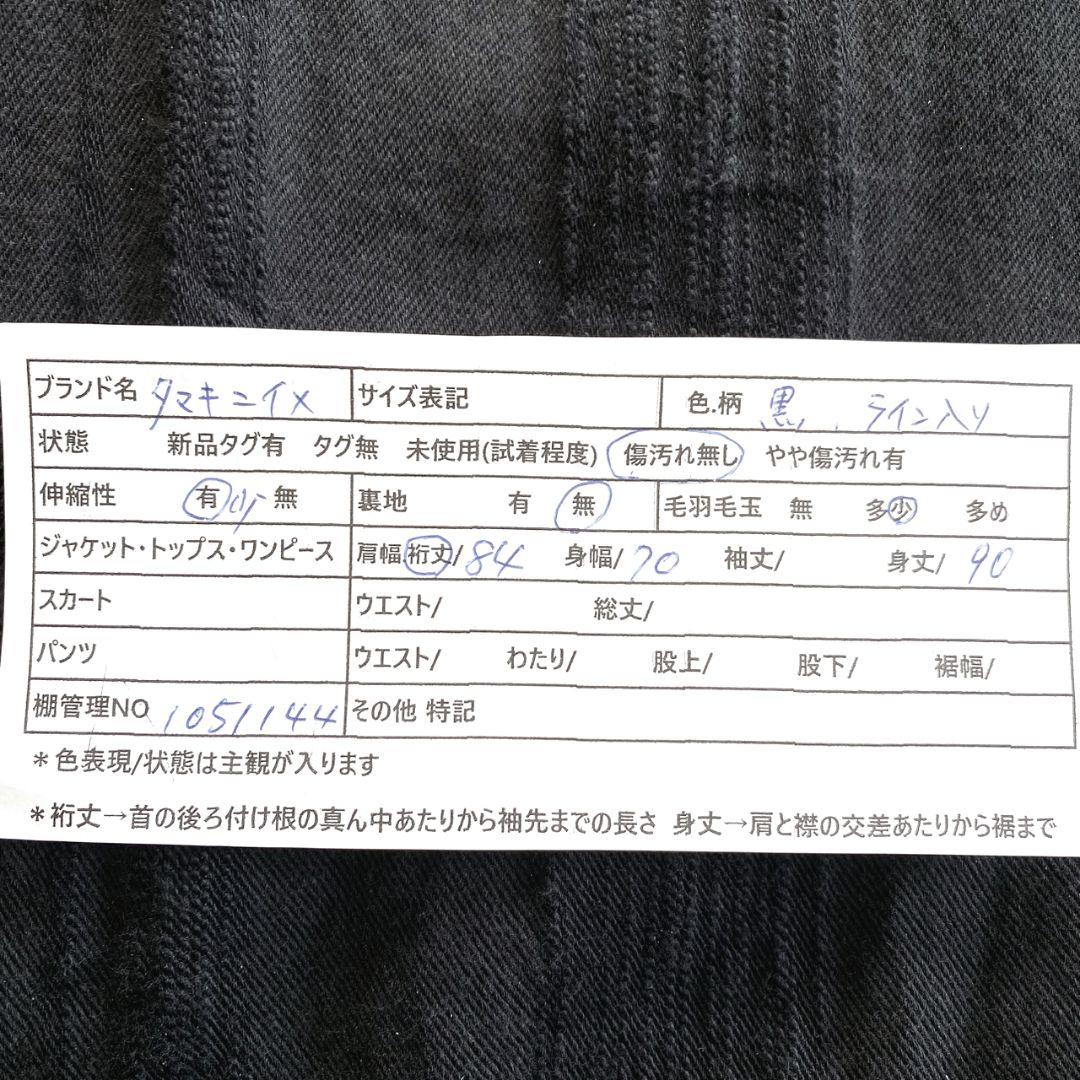 ブランド名 タマキニイメ サイズ表記 色.柄 黒、ライン入り
状態 新品タグ有 タグ無 未使用(試着程度) 傷汚れ無し やや傷汚れ有
伸縮性 有 少 無 裏地 有 無 毛羽毛玉 無 多少 多め
ジャケット・トップス・ワンピース 肩幅裄丈/84 身幅/70 袖丈/ 身丈/ 90
スカート ウエスト/ 総丈/
パンツ ウエスト/ わたり/ 股上/ 股下/ 裾幅/
棚管理NO 1051144 その他 特記
*色表現/状態は主観が入ります
*裄丈→首の後ろ付け根の真ん中あたりから袖先までの長さ 身丈→肩と襟の交差あたりから裾まで